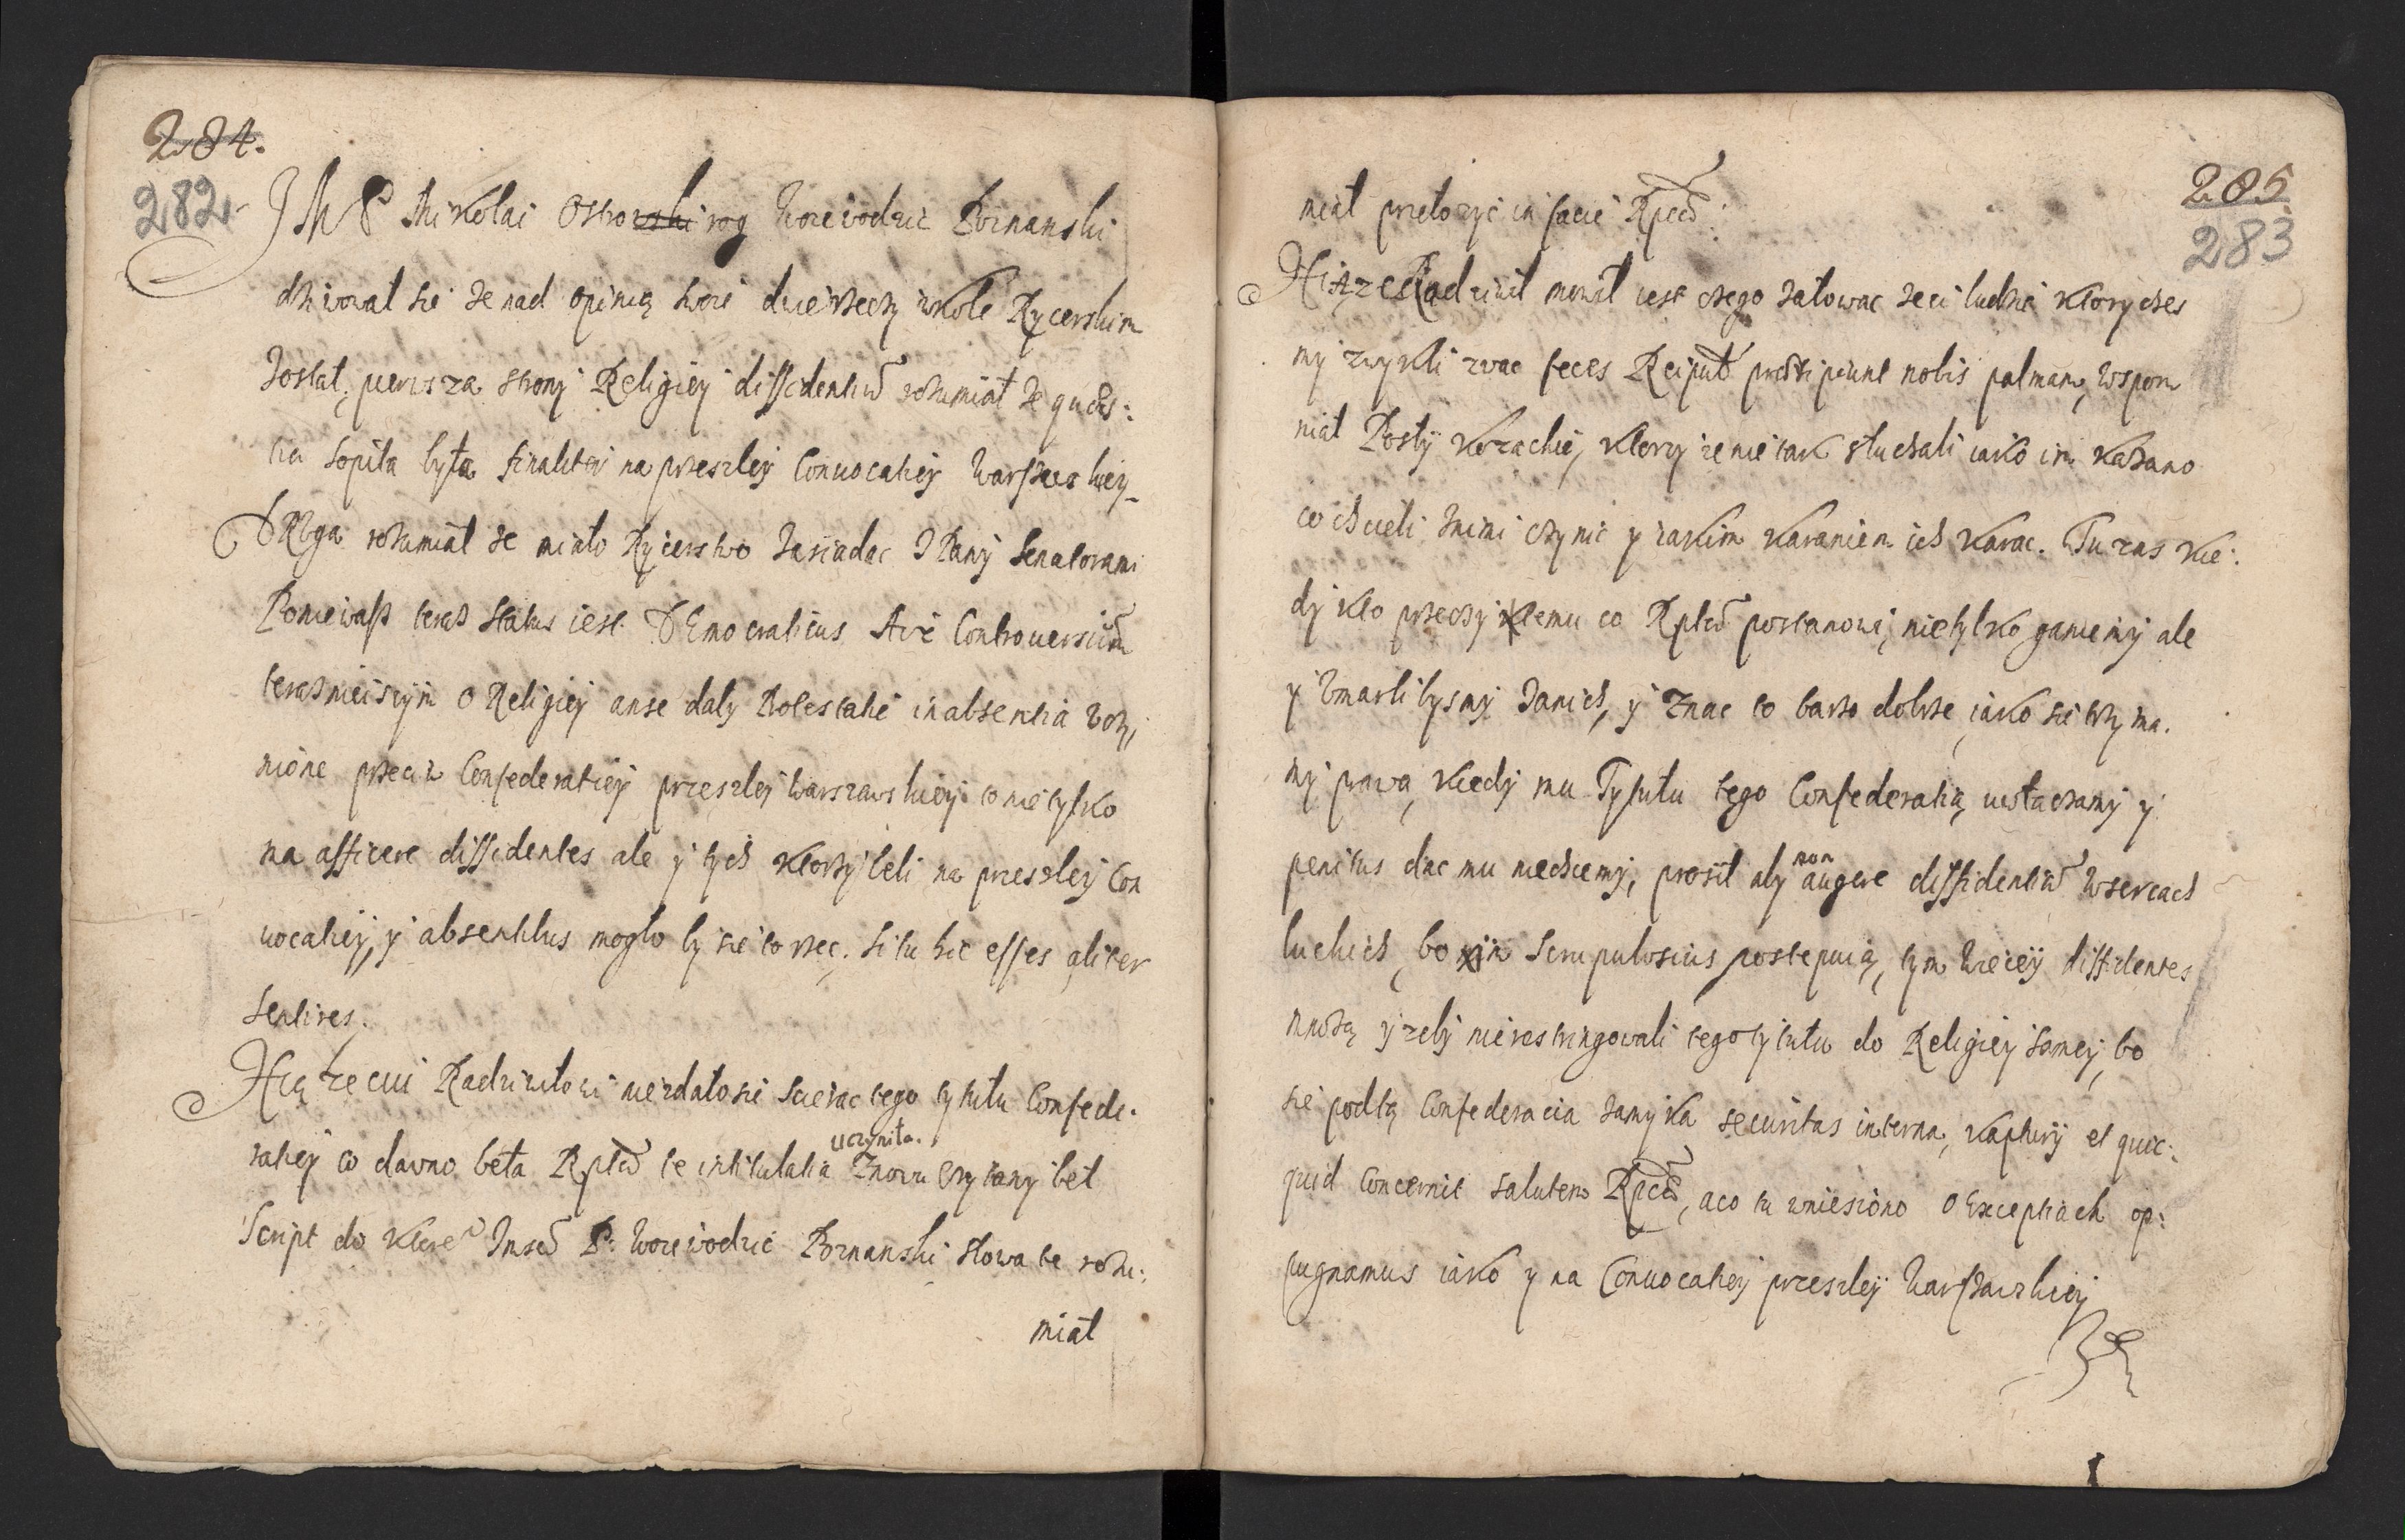 284.
282
JM P Mikolai Ostrorski rog Woiewodzic Poznanski
dziwował sie ze nad opinią swoie dwie rzeczy wkole Rycerskim
Został, pierwsza strony Religiey dissidentiū rozumiał ze quæs:
tia sopita była finaliter na przeszley Conuocatiey Warszawskiey
DRVga rozumiał ze miało Rycerstwo zasiadac z Pany Senatorami
Poniewasz teraz status iest DEmocraticus Aże Controuersiom
terasnieiszym o Religiey anse dały Protestatie in absentia vczy,
nione przeciw Confederatiey przeszley Warszawskiey. to nie tylko
ma afficere dissidentes ale y tych ktorzy beli na przeszley Con
uocatiey, y absentibus mogło by sie to rzec. Si tu hic esses aliter
sentires.
Xiązeciu Radziwiłowi niezdało sie scierac tego tytułu Confede.
ratiey co dawno beła Rptā te intitulatia uczynita. Znowu czytany bel
Script do ktore° Jmsć P: Woiewodzic Poznanski słowa te rozu:
miał
285
283
miał przełozyć in facie Rpcæ.
Xiąze Radziwił mowił iest czego załowac ze ci ludzie ktorychesz
my zwykli zvac feces Reipub præripiunt nobis palmam, wspom
niał Posły Kozackie, ktorzy ze nie tak słuchali iako im kazano
co chcieli znimi czynic y iakim karaniem ich karac. Tu zas kie:
dy kto przeczy temu co Rptā postanowi, nietylko ganiemy ale
y vmarlibysmy zanich, y znac to barzo dobrze, iako sie trzyma.
my prawa, kiedy mu Tytułu tego Confederatią uwłaczamy y
penitus dac mu niechcemy, prosił aby non augere diffidentiā wsercach
ludzkich, bo im scrupulosius postepuią, tym wiecey diffidentes
mnozą y zeby nie restringowali tego tytułu do Religiey samey, bo
sie podtą Confederacia zamyka securitas interna, Kaptury et quic:
quid concernit salutem Rpcæ, aco tu wniesiono o Exceptiach op:
pugnamus iako y na Conuocatiey przeszley Warszawskiey
Ze